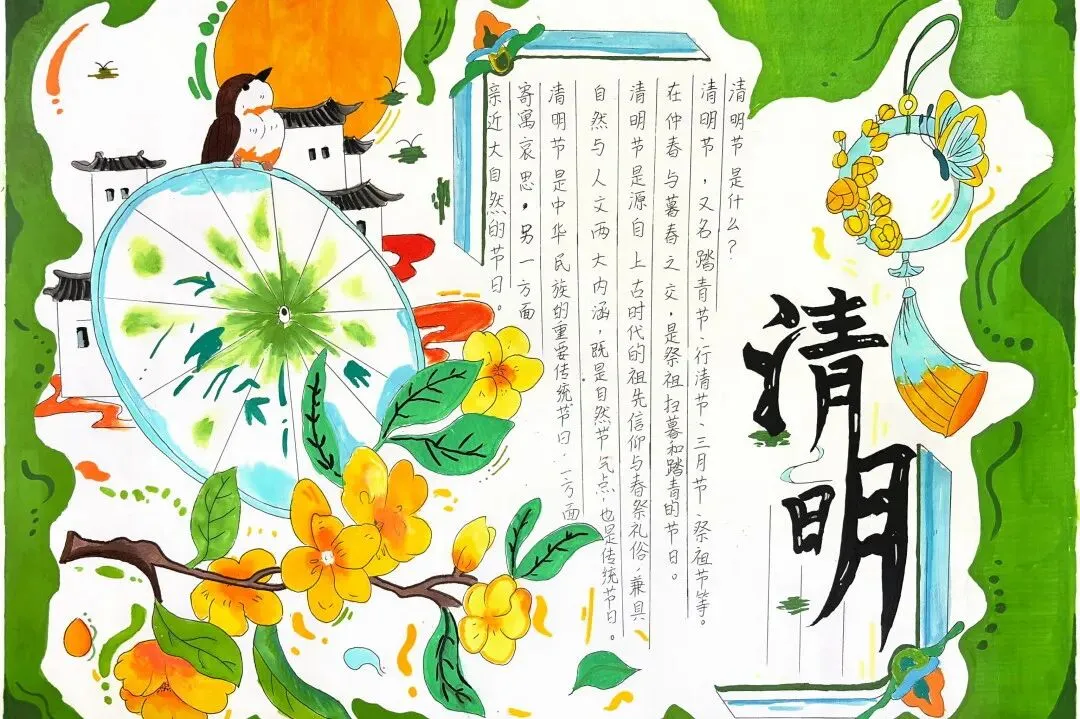 清明
清明节是什么？
清明节，又名踏青节、行清节、三月节、祭祖节等。
在仲春与暮春之交，是祭祖扫墓和踏青的节日。
清明节是源自上古时代的祖先信仰与春祭礼俗，兼具
自然与人文两大内涵，既是自然节气点，也是传统节日。
清明节是中华民族的重要传统节日，一方面
寄寓哀思，另一方面
亲近大自然的节日。